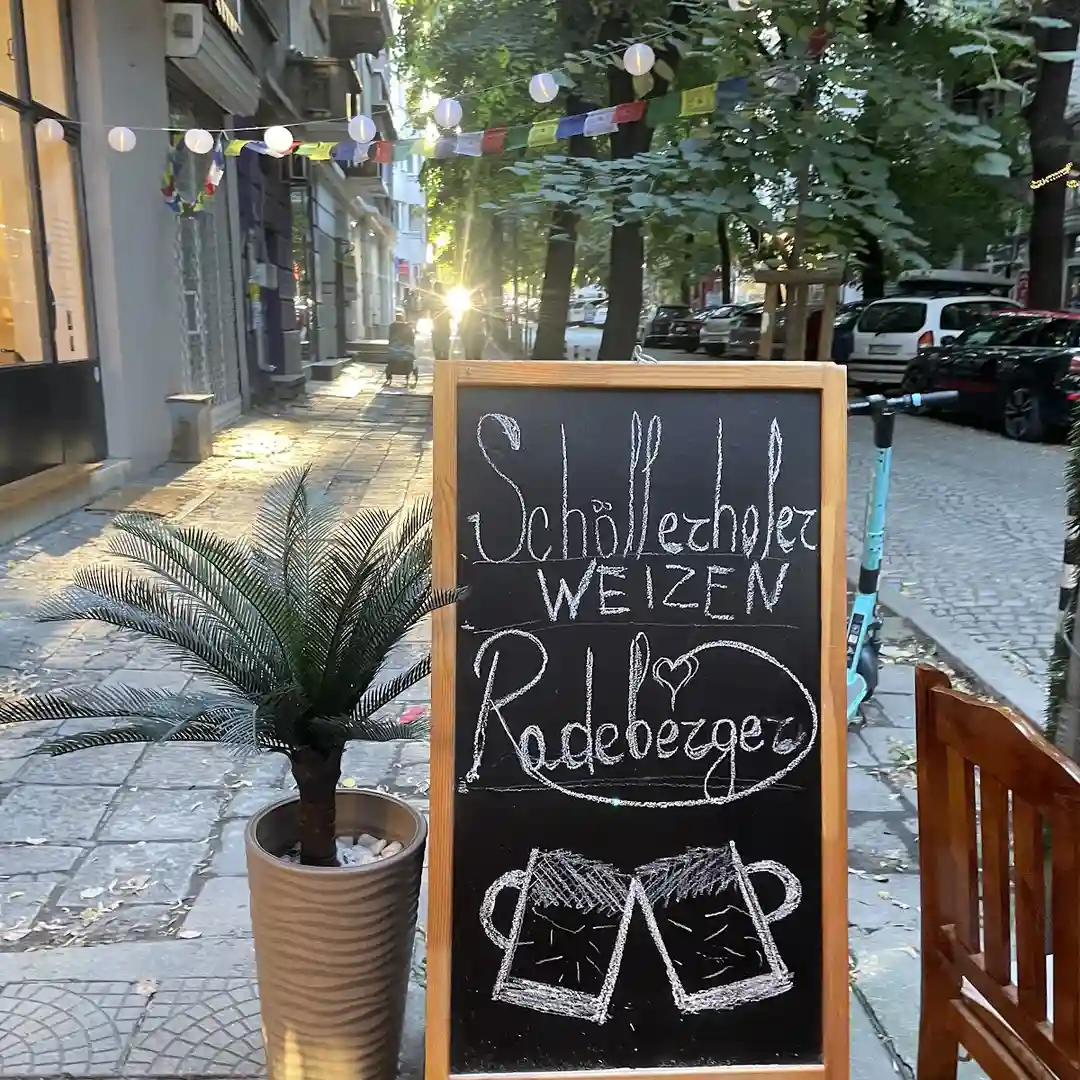 Schöllerhofer
WEIZEN
Radeberger